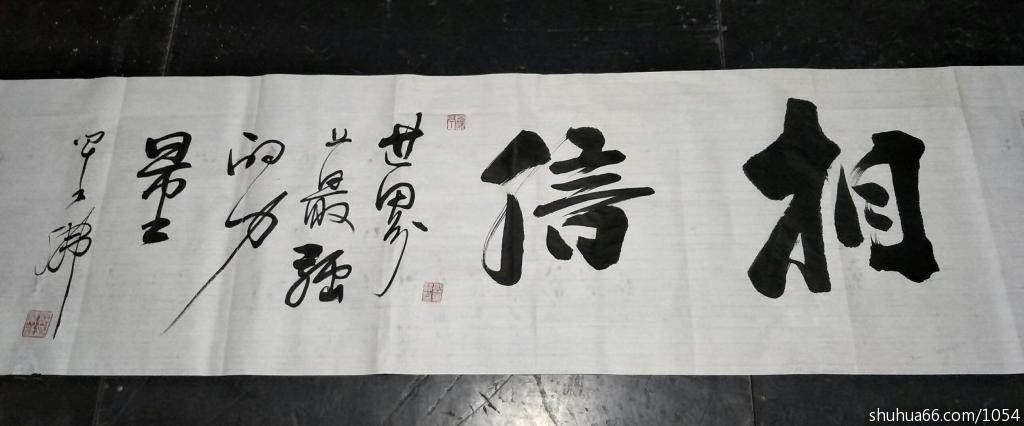 相信
世界
上最强
的力
量
shuhua66.com/1054